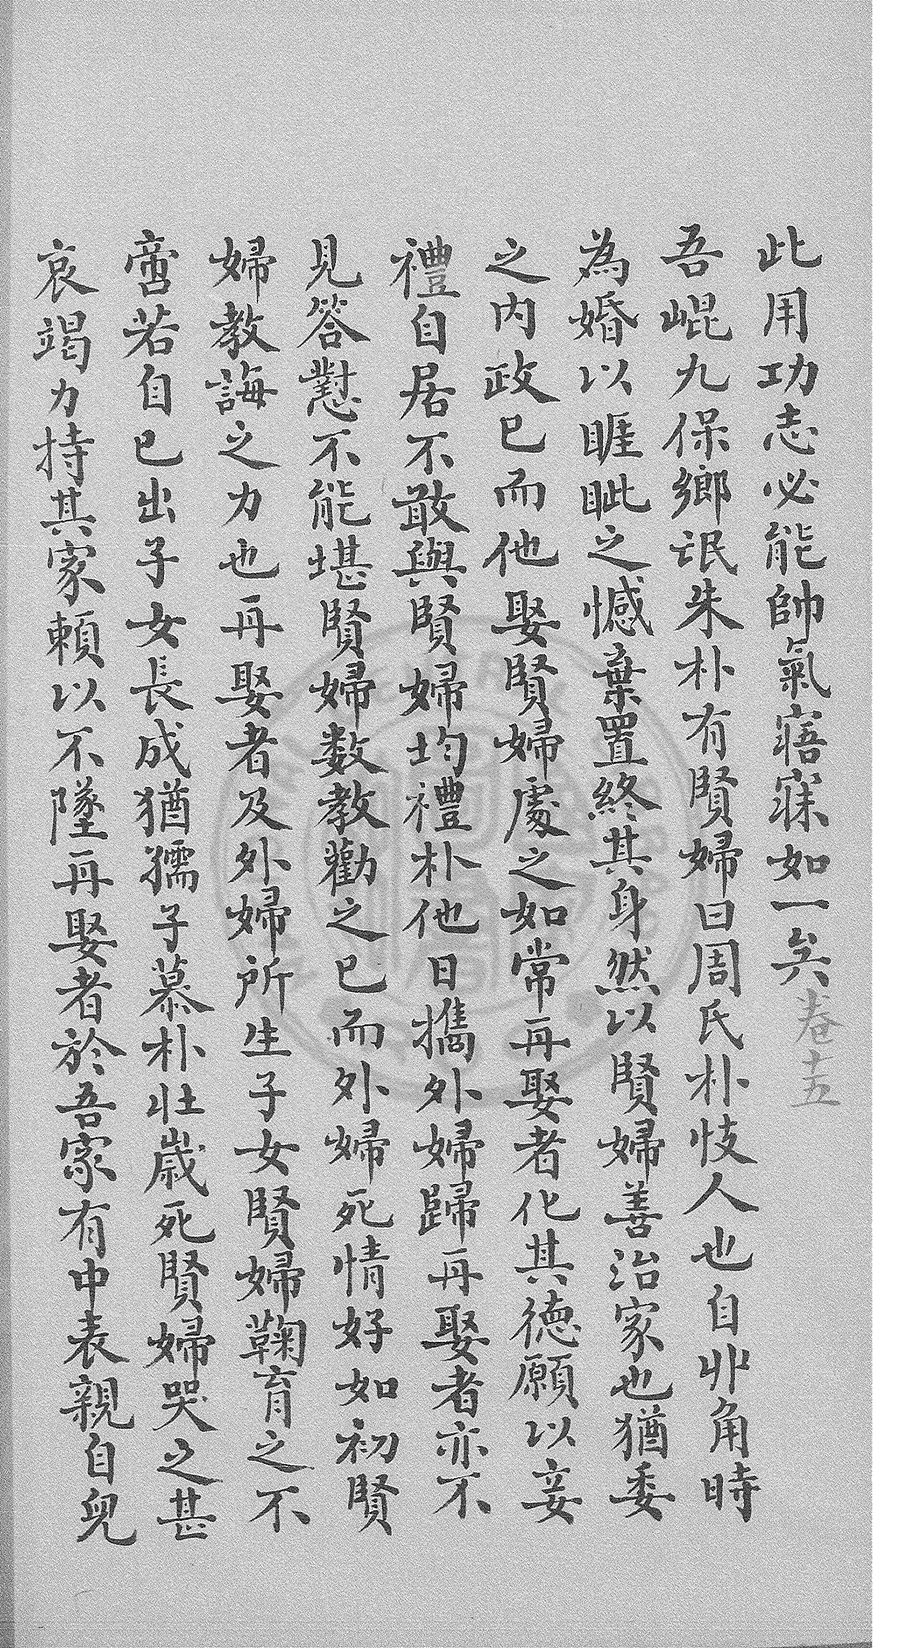 此用功志必能帥氣寤寐如一矣卷十五
吾崐九保鄉氓朱朴有賢婦曰周氏朴忮人也自丱角時
為婚以睚眦之憾棄置終其身然以賢婦善治家也猶委
之内政已而他娶賢婦處之如常再娶者化其德願以妾
禮自居不敢與賢婦均禮朴他日攜外婦歸再娶者亦不
見答懟不能堪賢婦数教勸之已而外婦死情好如初賢
婦教誨之力也再娶者及外婦所生子女賢婦鞠育之不
啻若自已出子女長成猶孺子慕朴壯歲死賢婦哭之甚
哀竭力持其家賴以不墜再娶者於吾家有中表親自兒